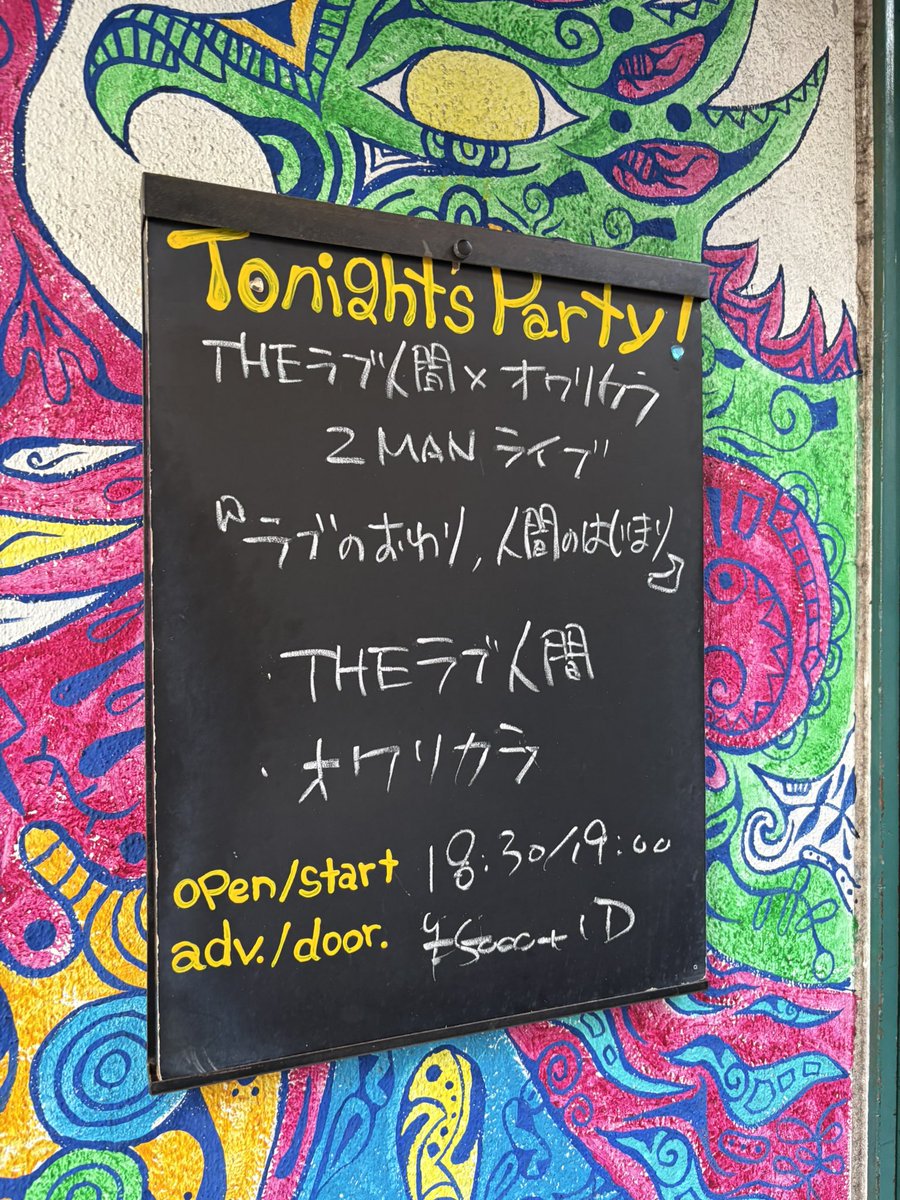 Tonight's Party!
THEラブ人間×オワリカラ
2MANライブ
『ラブのおわり,人間のはじまり』
THEラブ人間
オワリカラ
open/start 18:30/19:00
adv./door. ¥5000+1D